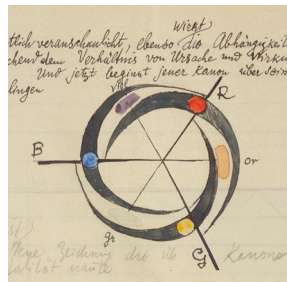 wirkt
tlich veranschaulicht, ebenso die Abhängigkeit
chend dem Verhältnis von Ursache und Wirku
Und jetzt beginnt jener Kanon über sein
lingen
viol
R
B
or
gr
G
Zeichnung die ich Kanone